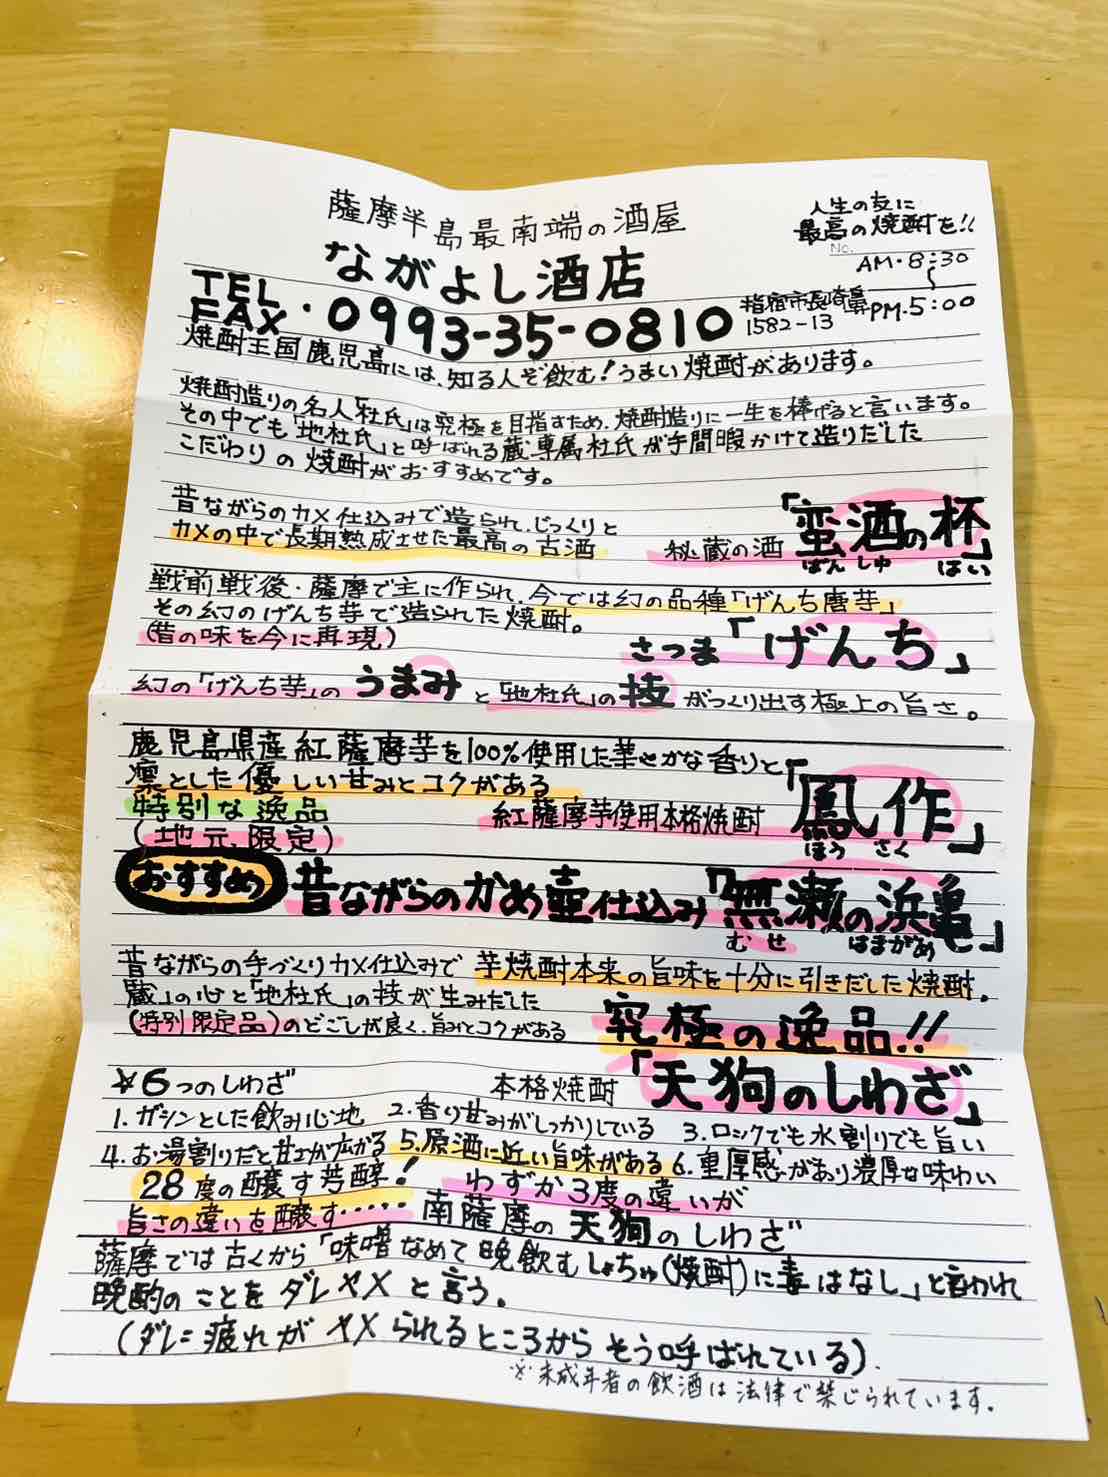 薩摩半島最南端の酒屋
人生の友に
最高の焼酎を!!
No.
ながよし酒店
AM・8:30
〜
PM.5:00
TEL
FAX・0993-35-0810
指宿市長崎鼻
1582-13
焼酎王国鹿児島には、知る人ぞ飲む!うまい焼酎があります。
焼酎造りの名人「杜氏」は究極を目指すため、焼酎造りに一生を捧げると言います。
その中でも「地杜氏」と呼ばれる蔵専属杜氏が手間暇かけて造りだした
こだわりの焼酎がおすすめです。
昔ながらのカメ仕込みで造られ、じっくりと
カメの中で長期熟成させた最高の古酒
秘蔵の酒「蛮酒の杯」
ばんしゅ はい
戦前戦後・薩摩で主に作られ、今では幻の品種「げんち唐芋」
その幻のげんち芋で造られた焼酎。
(昔の味を今に再現)
さつま「げんち」
幻の「げんち芋」のうまみと「地杜氏」の技がつくり出す極上の旨さ。
鹿児島県産紅薩摩芋を100%使用した華やかな香りと
凛とした優しい甘みとコクがある
特別な逸品
紅薩摩芋使用本格焼酎「鳳作」
ほう さく
(地元限定)
おすすめ 昔ながらのかめ壷仕込み「無瀬の浜亀」
むせ はまがめ
昔ながらの手づくりカメ仕込みで芋焼酎本来の旨味を十分に引きだした焼酎。
蔵」の心と「地杜氏」の技が生みだした
(特別限定品)のどごしが良く、旨みとコクがある
究極の逸品!!
¥6つのしわざ
本格焼酎「天狗のしわざ」
1.ガシンとした飲み心地 2.香り甘みがしっかりしている 3.ロックでも水割りでも旨い
4.お湯割りだと甘さが広がる 5.原酒に近い旨味がある 6.重厚感があり濃厚な味わい
28度の醸す芳醇! わずか3度の違いが
旨さの違いを醸す・・・・・南薩摩の天狗のしわざ
薩摩では古くから「味噌なめて晩飲むしょちゅ(焼酎)に毒はなし」と言われ
晩酌のことをダレヤメと言う。
(ダレ=疲れがヤメられるところからそう呼ばれている).
※未成年者の飲酒は法律で禁じられています。